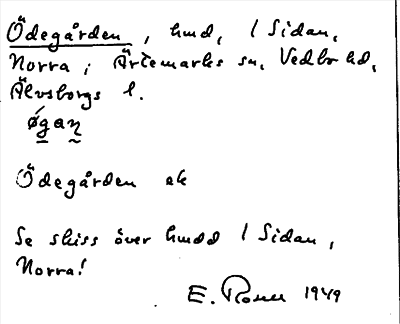 Ödegården, hmd, l Sidan,
Norra i Ärtemarks sn, Vedbo hd,
Älvsborgs l.
øgaṇ
Ödegården ek
Se skiss över hmdd l Sidan,
Norra!
E. Rosell 1949